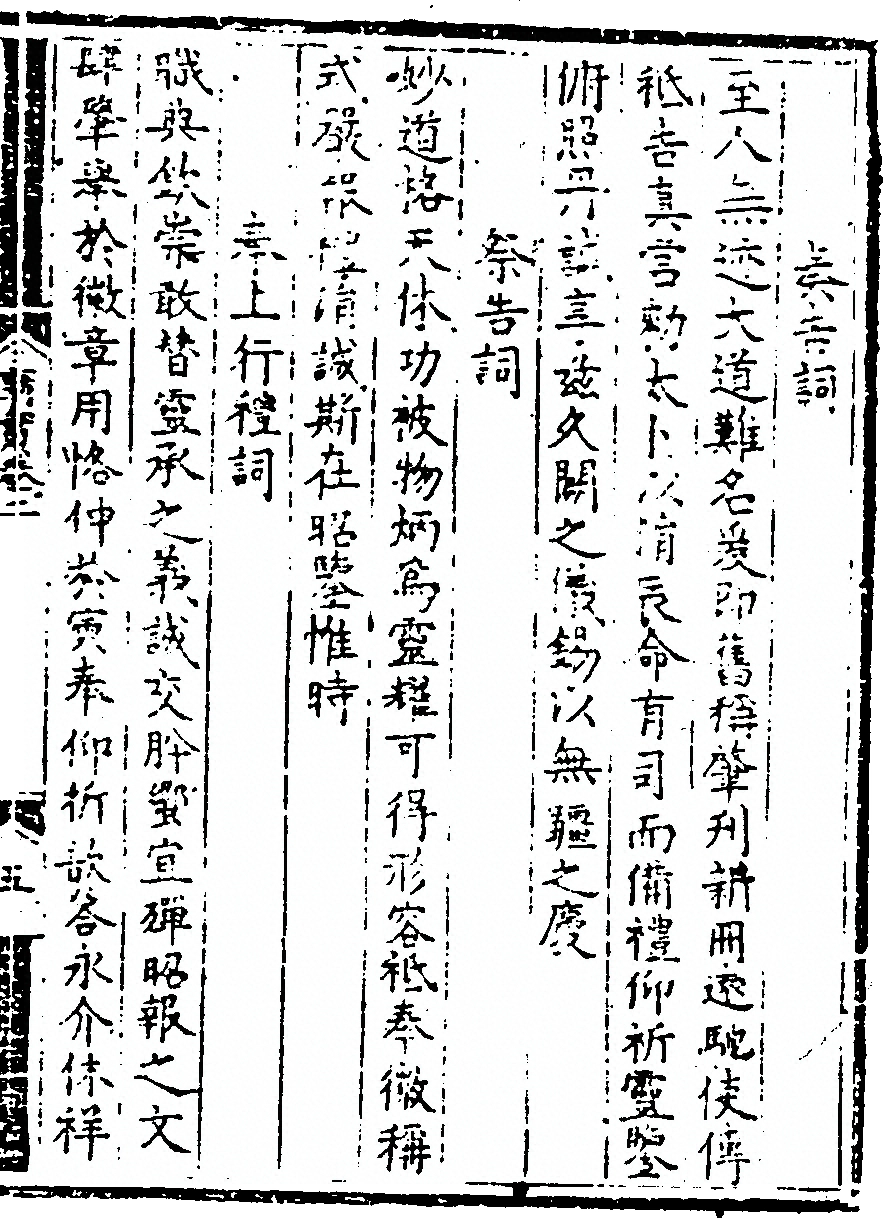 奏告詞
至人無迹大道難名爰即舊稱肇刋新冊遽馳使傳
祗吉真啻勑太卜以涓辰命有司而備禮仰祈靈鑒
俯照丹誠享茲久闕之儀錫以無疆之慶
祭告詞
妙道恪天休功被物炳爲靈耀可得形容祗奉徽稱
式嚴涓誠斯在昭鑒惟時
奉上行禮詞
職典欽崇敢替靈承之義誠交肸蠁宜殫昭報之文
肆肇舉於徽章用恪伸於寅奉仰祈歆答永介休祥
五